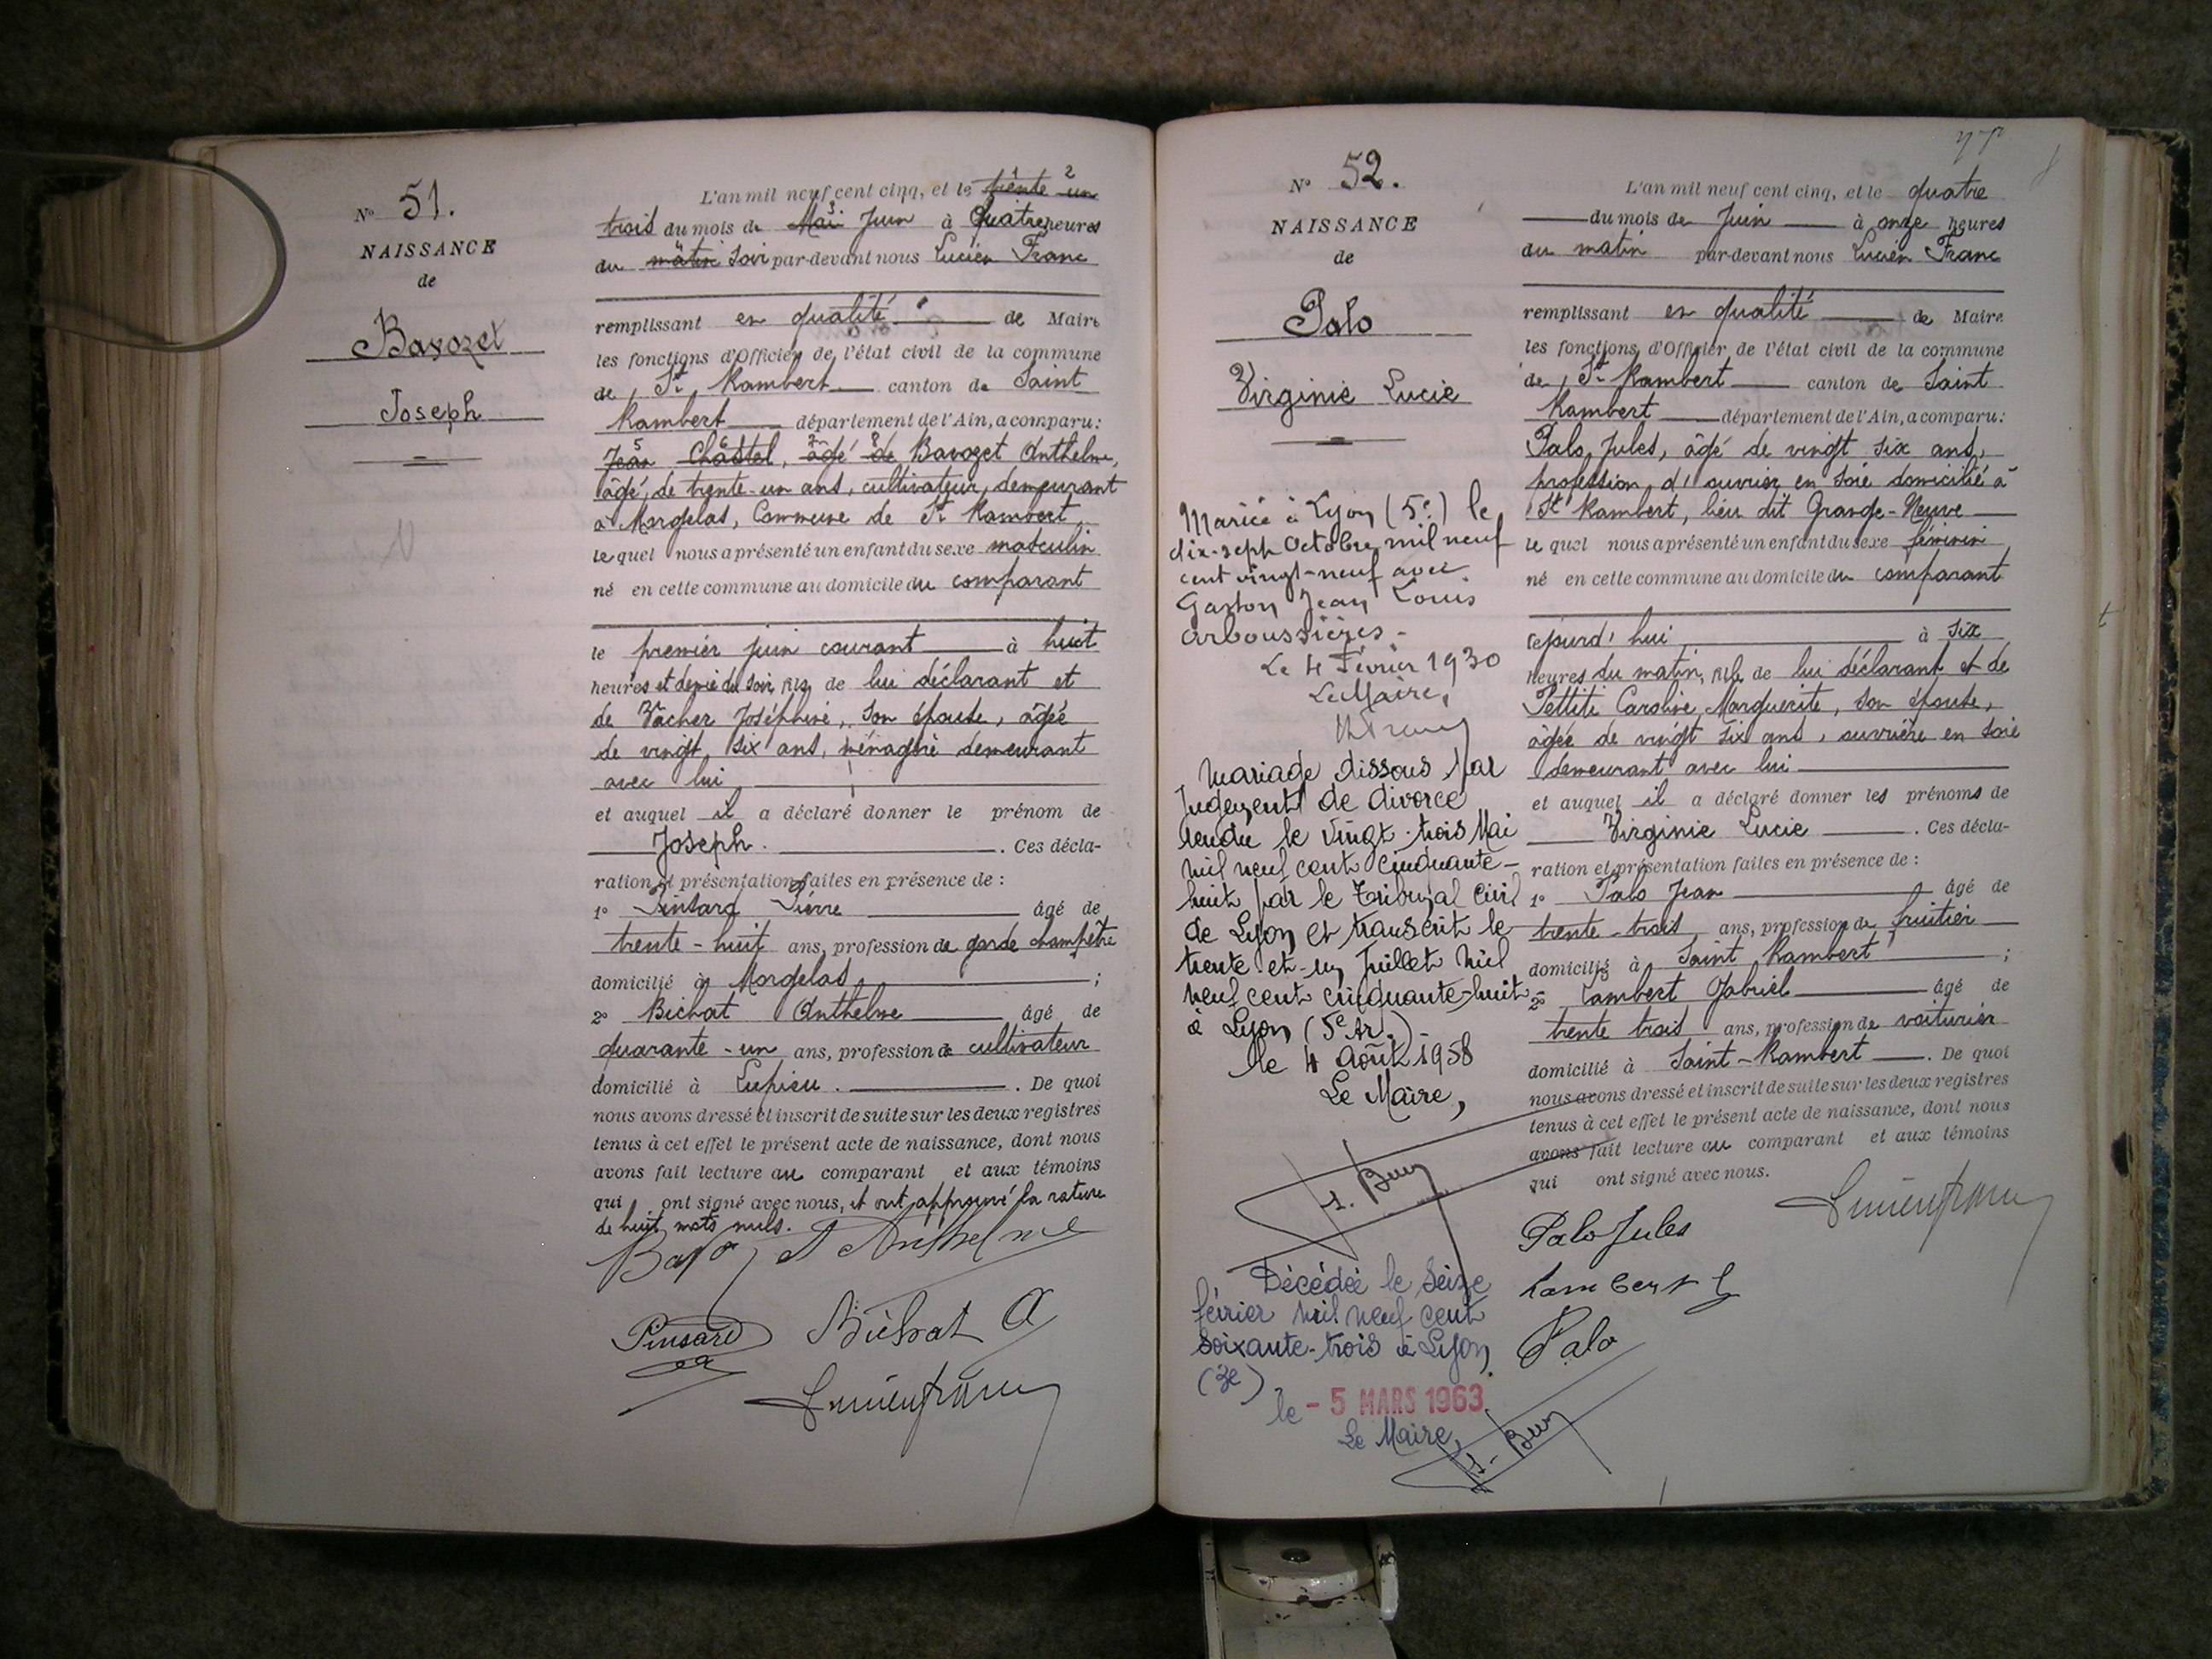 N° 51.
NAISSANCE
de
Bavozet
Joseph
L'an mil neuf cent cinq, et le trente un
trois du mois de Mai Juin à Quatre heures
du matin soir par-devant nous Lucien Franc
remplissant en qualité de Maire
les fonctions d'Officier de l'état civil de la commune
de St Rambert canton de Saint
Rambert département de l'Ain, a comparu:
Jean Chastel, âgé de Bavozet Anthelme,
âgé de trente-un ans, cultivateur, demeurant
à Morgelas, Commune de St Rambert
le quel nous a présenté un enfant du sexe masculin
né en cette commune au domicile du comparant
le premier juin courant à huit
heures et demie du soir, fils de lui déclarant et
de Vacher Joséphine, son épouse, âgée
de vingt six ans, ménagère demeurant
avec lui
et auquel il a déclaré donner le prénom de
Joseph. Ces décla-
ration et présentation faites en présence de :
1° Pinsard Pierre âgé de
trente-huit ans, profession de garde champêtre
domicilié à Morgelas ;
2° Bichat Anthelme âgé de
quarante-un ans, profession de cultivateur
domicilié à Lupieu. De quoi
nous avons dressé et inscrit de suite sur les deux registres
tenus à cet effet le présent acte de naissance, dont nous
avons fait lecture au comparant et aux témoins
qui ont signé avec nous, et ont approuvé la rature
de huit mots nuls.
Bavozet Anthelme
Pinsard Bichat A
Lucien Franc
N° 52.
NAISSANCE
de
Palo
Virginie Lucie
Mariée à Lyon (5e) le
dix-sept Octobre mil neuf
cent vingt-neuf avec
Gaston Jean Louis
Arboussières-
Le 4 Février 1930
Le Maire,
Mariage dissous par
Jugement de divorce
rendu le vingt-trois Mai
mil neuf cent cinquante-
huit par le Tribunal Civil
de Lyon et transcrit le
trente-et-un Juillet mil
neuf cent cinquante-huit
à Lyon (5e Ar.)-
le 4 Août 1958
Le Maire,
Décédée le seize
février mil neuf cent
soixante-trois à Lyon
(3e)
le - 5 MARS 1963
Le Maire,
L'an mil neuf cent cinq, et le quatre
du mois de Juin à onze heures
du matin par-devant nous Lucien Franc
remplissant en qualité de Maire
les fonctions d'Officier de l'état civil de la commune
de St Rambert canton de Saint
Rambert département de l'Ain, a comparu:
Palo Jules, âgé de vingt six ans,
profession d'ouvrier en soie domicilié à
St Rambert, lieu dit Grange-Neuve
le quel nous a présenté un enfant du sexe féminin
né en cette commune au domicile du comparant
cejourd'hui à six
heures du matin, fille de lui déclarant et de
Pettiti Caroline Marguerite, son épouse,
âgée de vingt six ans, ouvrière en soie
demeurant avec lui
et auquel il a déclaré donner les prénoms de
Virginie Lucie. Ces décla-
ration et présentation faites en présence de :
1° Palo Jean âgé de
trente-trois ans, profession de fruitier
domicilié à Saint Rambert ;
2° Lambert Gabriel âgé de
trente trois ans, profession de voiturier
domicilié à Saint-Rambert. De quoi
nous avons dressé et inscrit de suite sur les deux registres
tenus à cet effet le présent acte de naissance, dont nous
avons fait lecture au comparant et aux témoins
qui ont signé avec nous.
Palo Jules
Lucien Franc
Lambert G
Palo